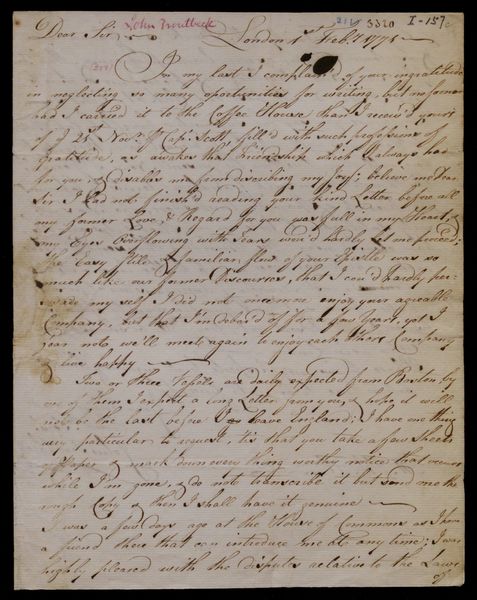 John Troutbeck
3320
I-157c
Dear Sir, London 1st Feby. 1775
In my last I complain'd of your ingratitude
in neglecting so many oportunities for writing, but no sooner
had I carried it to the Coffee House, than I receiv'd yours
of 21st Novr. Capt. Scott, fill'd with such professions of
gratitude, as awakes that Friendship which I always had
for you, & disables me from discribing my Joy; believe me Dear
Sir I had not finish'd reading your kind Letter before all
my former Love & Regard for you was full in my Heart, &
my Eyes Overflowing with Tears wou'd hardly let me proceed;
the Easy Stile & familiar flow of your Epistle was so
much like our former Discourses, that I cou'd hardly per-
swade my self I did not once more enjoy your agreable
Company, but that I'm debar'd of for a few Years, yet I
fear not, we'll meet again to enjoy each others Company
& live happy
Two or three Vessells are daily expected from Boston by
one of them I expect a long Letter from you, & hope it will
not be the last before I leave England; I have one thing
very particular to request, tis that you take a few sheets
of Paper & mark down every thing worthy notice that occurs
while I'm gone, & do not transcribe it but send me the
rough Copy & then I shall have it genuine
I was a few days ago at the House of Commons as I have
a friend there that can introduce me at any time; I was
highly pleased with the disputes relative to the Laws
of